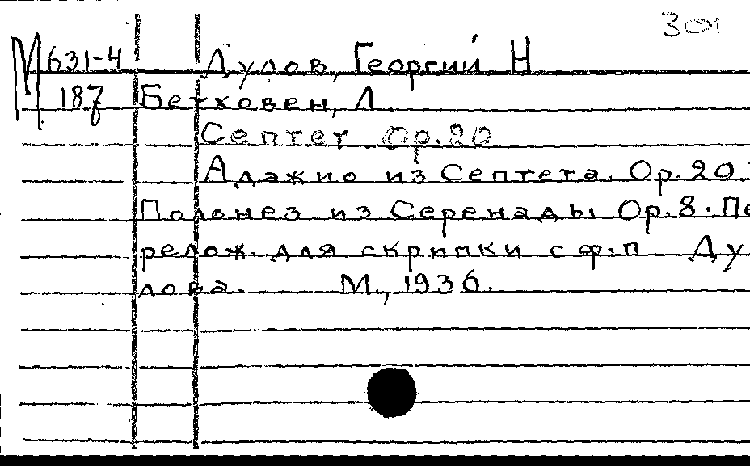 301
М 631-4 Дулов, Георгий Н
187 Бетховен, Л.
Септет Ор. 20
Адажио из Септета. Ор. 20.
Полонез из Серенады Ор. 8. Пе
релож. для скрипки с ф.п Ду
лова. М., 1936.